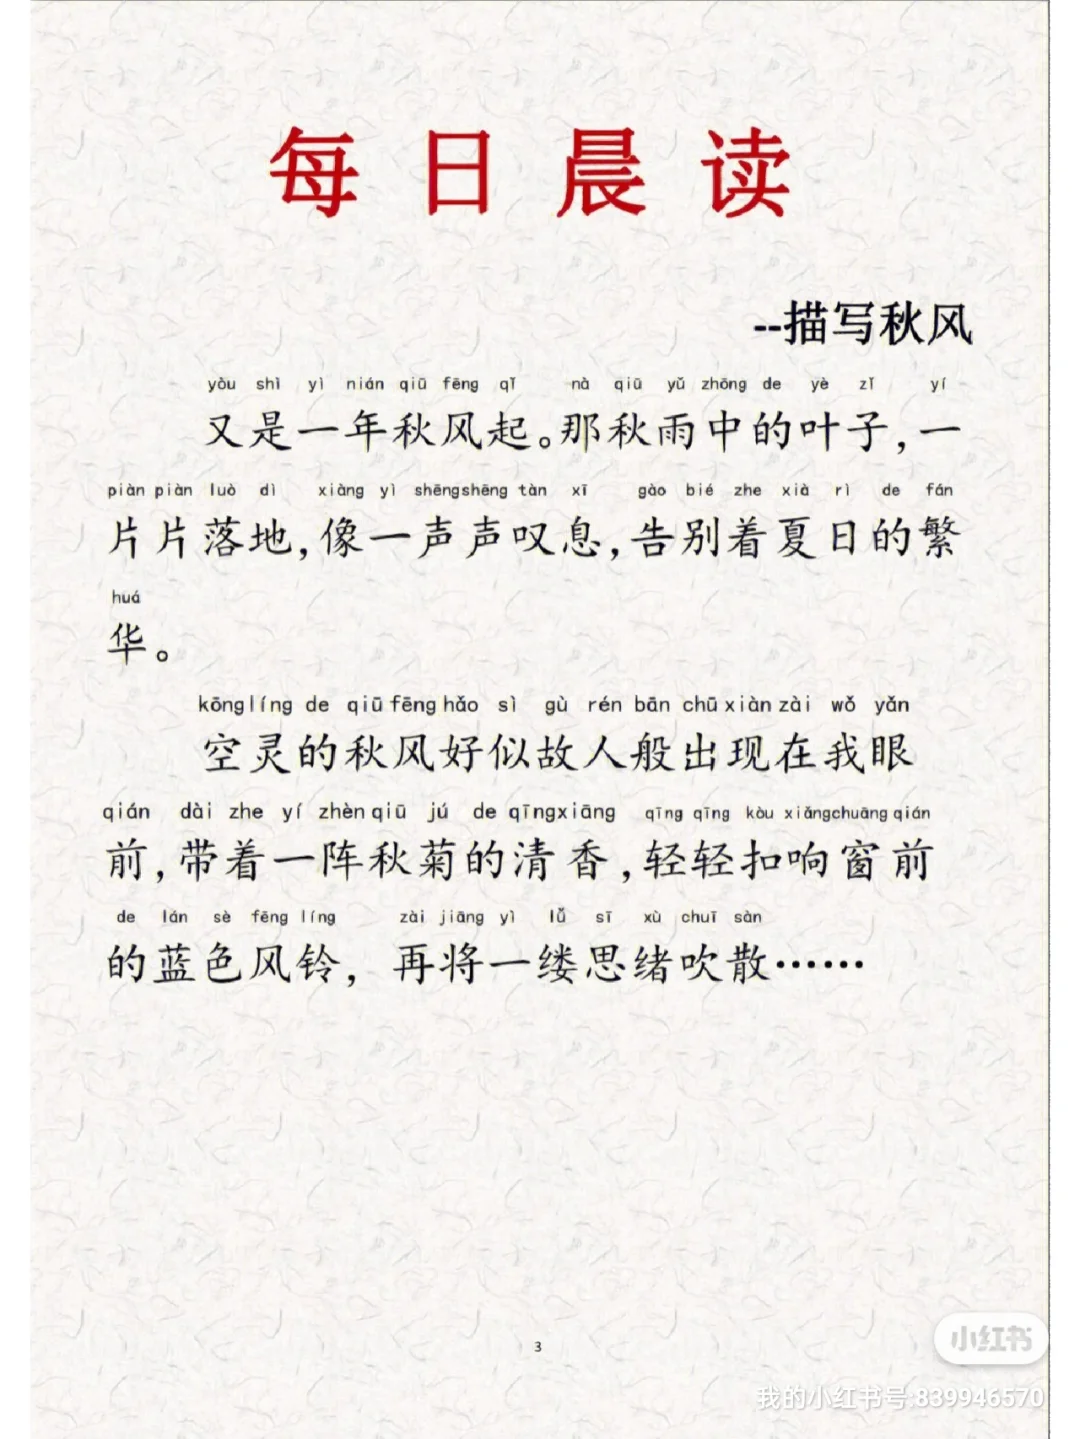 每日晨读
--描写秋风
yòu shì yì nián qiū fēng qǐ nà qiū yǔ zhōng de yè zǐ yí
又是一年秋风起。那秋雨中的叶子，一
piàn piàn luò dì xiàng yì shēngshēng tàn xī gào bié zhe xià rì de fán
片片落地，像一声声叹息，告别着夏日的繁
huá
华。
kōnglíng de qiū fēng hǎo sì gù rén bān chū xiàn zài wǒ yǎn
空灵的秋风好似故人般出现在我眼
qián dài zhe yí zhèn qiū jú de qīngxiāng qīng qīng kòu xiǎngchuāng qián
前，带着一阵秋菊的清香，轻轻扣响窗前
de lán sè fēng líng zài jiāng yì lǚ sī xù chuī sàn
的蓝色风铃，再将一缕思绪吹散……
3
小红书
我的小红书号:839946570